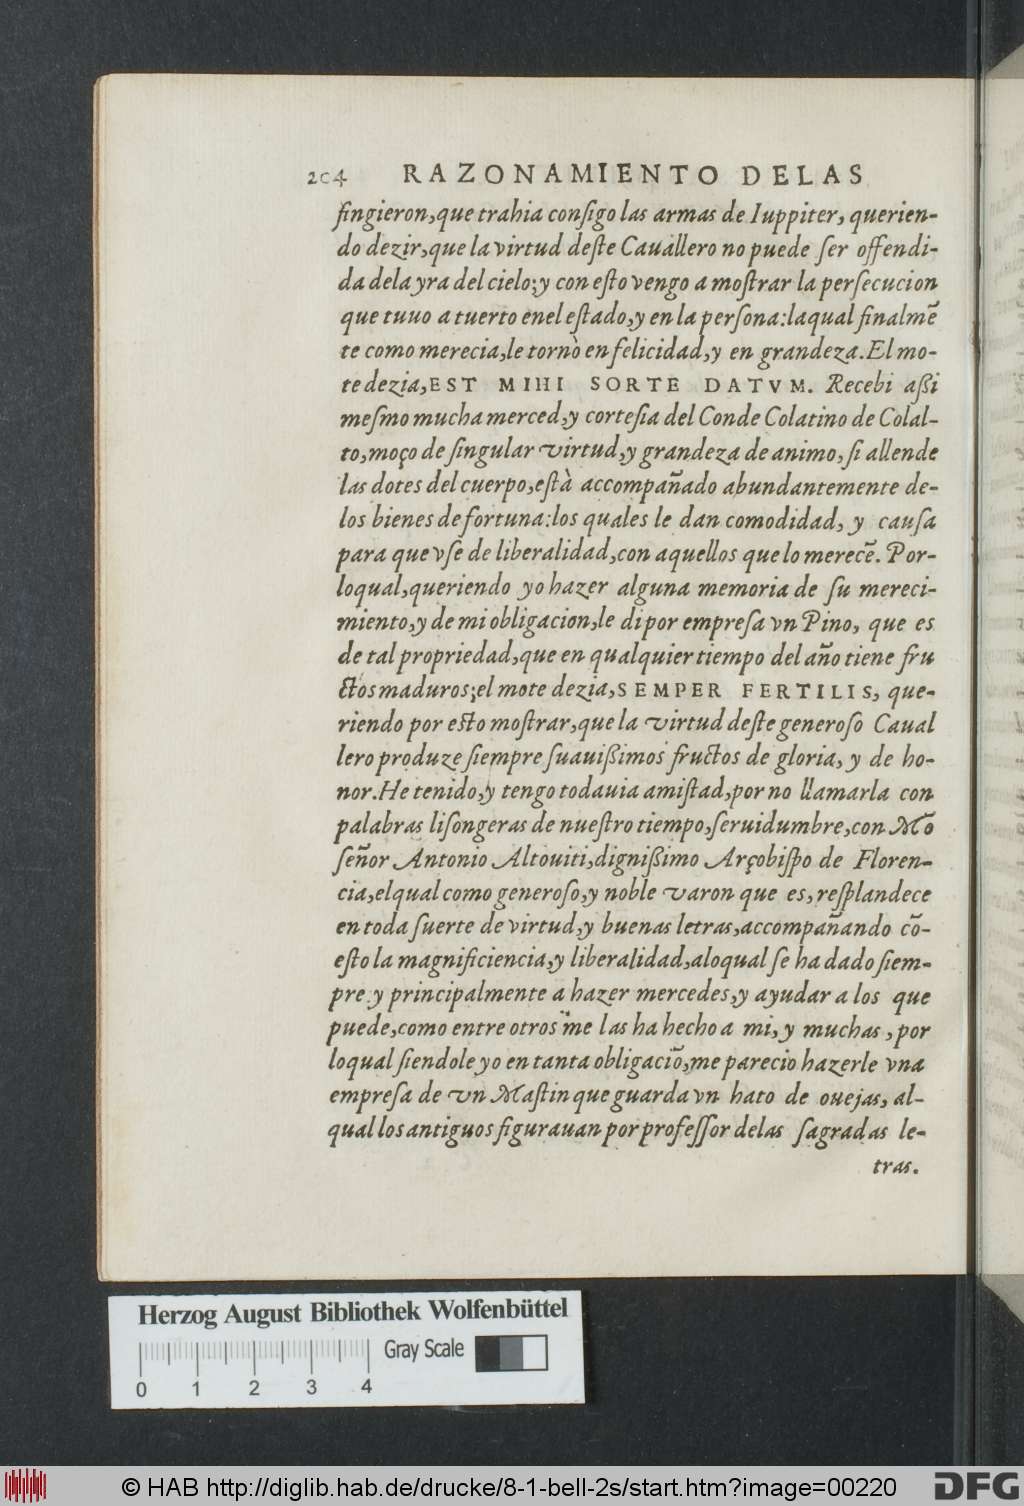 204 RAZONAMIENTO DELAS
fingieron,que trahia consigo las armas de Iuppiter, querien-
do dezir,que la virtud deſte Cauallero no puede ſer offendi-
da dela yra del cielo;y con eſto vengo a moſtrar la perſecucion
que tuuo a tuerto enel eſtado,y en la perſona:laqual finalmē
te como merecia,le tornò en felicidad,y en grandeza.El mo-
te dezia,EST MIHI SORTE DATVM. Recebi aßi
meſmo mucha merced,y corteſia del Conde Colatino de Colal-
to,moço de ſingular virtud,y grandeza de animo,ſi allende
las dotes del cuerpo,eſtà accompañado abundantemente de-
los bienes de fortuna:los quales le dan comodidad, y cauſa
para que vſe de liberalidad,con aquellos que lo merecē. Por-
loqual,queriendo yo hazer alguna memoria de ſu mereci-
miento,y de mi obligacion,le di por empreſa vn Pino, que es
de tal propriedad,que en qualquier tiempo del año tiene fru
ctos maduros;el mote dezia,SEMPER FERTILIS, que-
riendo por eſto moſtrar,que la virtud deſte generoſo Caual
lero produze ſiempre ſuauißimos fructos de gloria, y de ho-
nor.He tenido,y tengo todauia amiſtad,por no llamarla con
palabras liſongeras de nueſtro tiempo,ſeruidumbre,con Mō
ſeñor Antonio Altouiti,dignißimo Arçobiſpo de Floren-
cia,elqual como generoſo,y noble varon que es,reſplandece
en toda ſuerte de virtud,y buenas letras,accompañando cō-
eſto la magnificiencia,y liberalidad,aloqual ſe ha dado ſiem-
pre y principalmente a hazer mercedes,y ayudar a los que
puede,como entre otros me las ha hecho a mi,y muchas,por
loqual ſiendole yo en tanta obligaciō,me parecio hazerle vna
empreſa de vn Maſtin que guarda vn hato de ouejas, al-
qual los antiguos figurauan por profeſſor delas ſagradas le-
tras.
Herzog August Bibliothek Wolfenbüttel
Gray Scale
0 1 2 3 4
© HAB http://diglib.hab.de/drucke/8-1-bell-2s/start.htm?image=00220
DFG